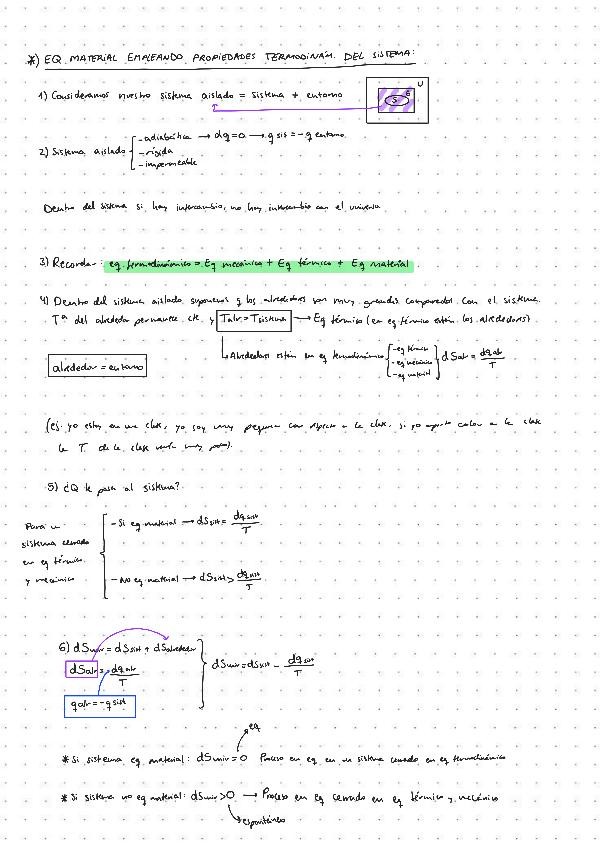 *) EQ MATERIAL EMPLEANDO PROPIEDADES TERMODINÁM. DEL SISTEMA:
1) Consideramos nuestro sistema aislado = sistema + entorno
U
S E
2) Sistema aislado
-adiabática → dq=0 → q sis = -q entorno
-rígida
-impermeable
Dentro del sistema si hay intercambio, no hay intercambio con el universo
3) Recordar: eq. termodinámico = Eq mecánico + Eq térmico + Eq material.
4) Dentro del sistema aislado suponemos q los alrededores son muy grandes comparados con el sistema.
Tª del alrededor permanece cte y Talr=Tsistema → Eq térmico (en eq térmico están los alrededores)
Alrededores están en eq termodinámico
-eq térmico
-eq mecánico
-eq material
dSalr = dqalr/T
alrededor = entorno
(ej. yo estoy en una clase, yo soy muy pequeña con respecto a la clase, si yo aporto calor a la clase
la T de la clase varía muy poco).
5) ¿Q le pasa al sistema?
Para un
sistema cerrado
en eq térmico
y mecánico
-Si eq material → dSsist = dqsist/T
-No eq material → dSsist > dqsist/T
6) dSuniv = dSsist + dSalrededor
dSalr = dqalr/T
qalr = -qsist
dSuniv = dSsist - dqsist/T
eq
* Si sistema eq material: dSuniv = 0 Proceso en eq en un sistema cerrado en eq termodinámico
* Si sistema no eq material: dSuniv > 0 → Proceso en eq cerrado en eq térmico y mecánico
espontáneo